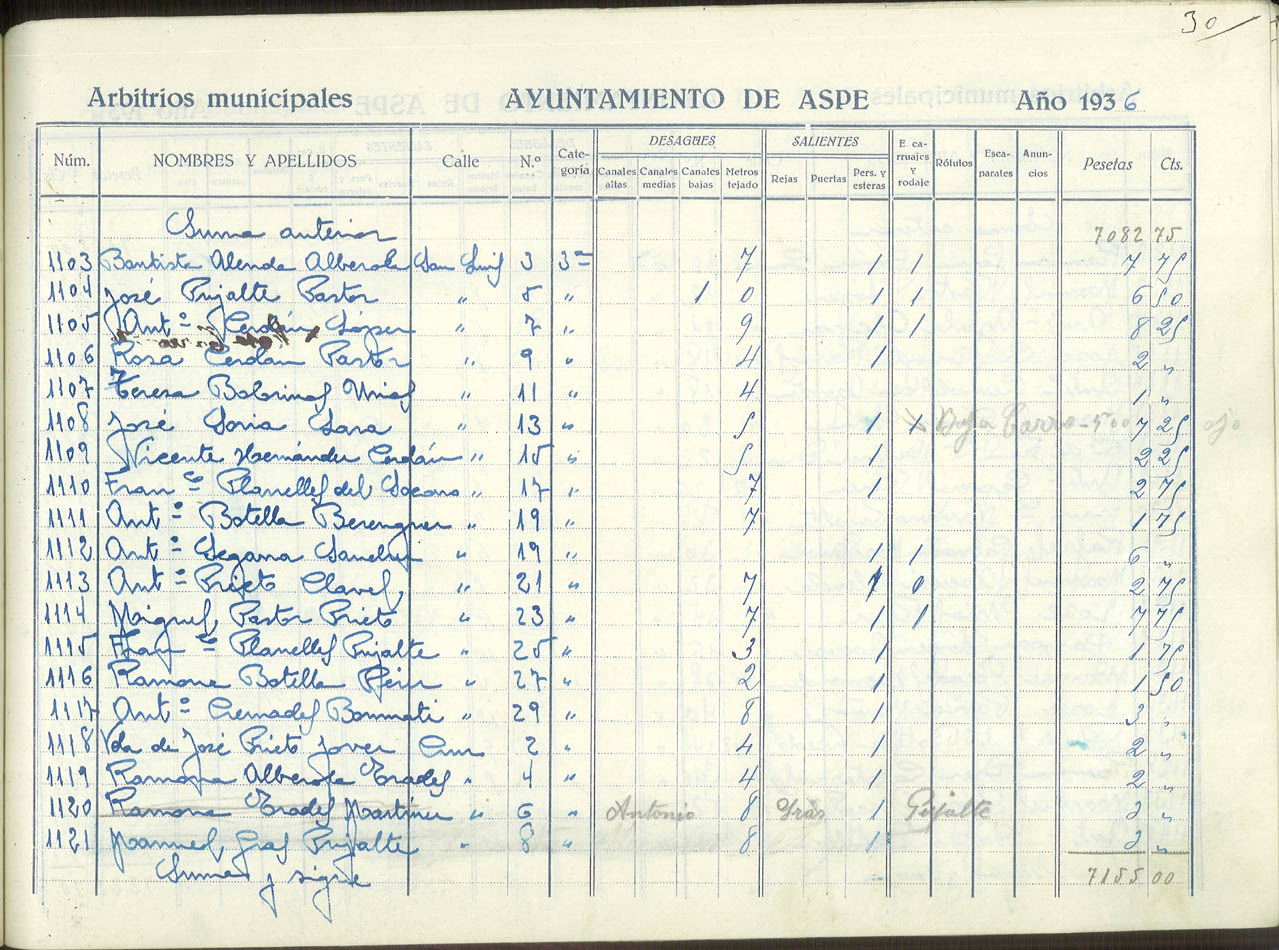 30
Arbitrios municipales AYUNTAMIENTO DE ASPE Año 1936
Núm. NOMBRES Y APELLIDOS Calle N.º Categoría DESAGÜES Canales altas Canales medias Canales bajas Metros tejado SALIENTES Rejas Puertas Pers. y esteras E. carruajes y rodaje Rótulos Escaparates Anuncios Pesetas Cts.
Suma anterior 7082 75
1103 Bautista Alenda Alberola San Luis 3 3ª 7 1 1 7 75
1104 José Pujalte Pastor " 5 " 1 0 1 1 6 50
1105 Antº Cerdán López " 7 " 9 1 1 8 25
1106 Rosa Cerdán Pastor " 9 " 4 1 2 "
1107 Teresa " 11 " 4 1 "
1108 José Soria Sara " 13 " 5 1 1 Baja Carro - 5'00 7 25 ojo
1109 Vicente Hernández Cerdán " 15 " 5 1 2 25
1110 Franco Planelles del " 17 " 7 1 2 75
1111 Antº Botella Berenguer " 19 " 7 1 75
1112 Antº Sánchez " 19 " 1 1 6 "
1113 Antº Prieto Clavel " 21 " 7 1 0 2 75
1114 Miguel Pastor Prieto " 23 " 7 1 1 7 75
1115 Franco Planelles Pujalte " 25 " 3 1 1 75
1116 Ramona Botella " 27 " 2 1 1 50
1117 Antº Cremades Bonmati " 29 " 8 1 3 "
1118 Vda de José Prieto Jover 2 " 4 1 2 "
1119 Ramona Alberola Prades " 4 " 4 1 2 "
1120 Ramona Prades Martínez " 6 " Antonio 8 Grás 1 Pujalte 3 "
1121 Manuel Gras Pujalte " 8 " 8 1 3 "
Suma y sigue 7155 00